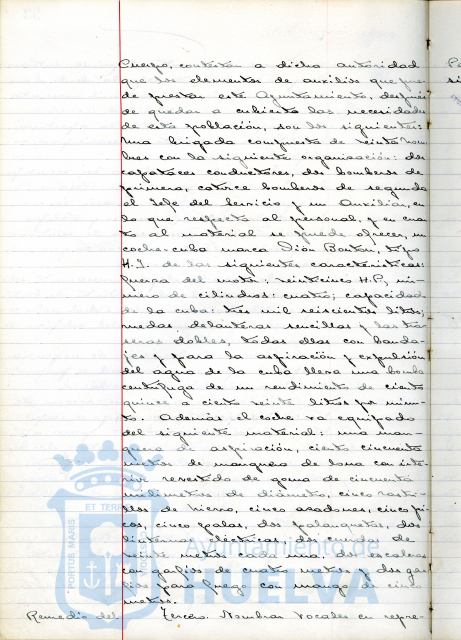 Cuerpo, contestar a dicha autoridad
que los elementos de auxilios que pue-
de prestar este Ayuntamiento, después
de quedar a cubierto las necesidades
de esta población, son los siguientes:
una brigada compuesta de veinte hom-
bres con la siguiente organización: dos
capataces conductores, dos bomberos de
primera, catorce bomberos de segunda
el Jefe del Servicio y un Auxiliar, en
lo que respecta al personal, y en cuan-
to al material se puede ofrecer, un
coche-cuba marca Dión Bouton, tipo
H.J. de las siguientes características:
fuerza del motor: veinticinco H.P., nú-
mero de cilindros: cuatro; capacidad
de la cuba: tres mil seiscientos litros;
ruedas, delanteras sencillas y las tra-
seras dobles, todas ellas con banda-
jes y para la aspiración y expulsión
del agua de la cuba lleva una bomba
centrífuga de un rendimiento de ciento
quince a ciento veinte litros por minu-
to. Además el coche va equipado
del siguiente material: una man-
guera de aspiración, ciento cincuenta
metros de manguera de lona con inte-
rior revestido de goma de cincuenta
milímetros de diámetro, cinco rastri-
llos de hierro, cinco azadones, cinco pi-
cos, cinco palas, dos palanquetas, dos
linternas eléctricas, dos cuerdas de
veinte metros cada una, dos escaleras
con garfios de cuatro metros y dos gar-
fios para fuego con mango de cinco
metros.
Remedio del Tercero. Nombrar Vocales en repre-
PORTUS MARIS ET TERR
Ayuntamiento de
HUELVA